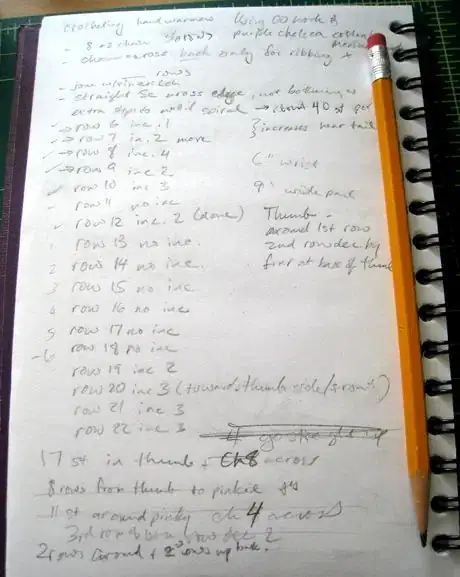 crocheting handwarmers Using OO hook &
- 8 chain purple chelsea
- chain across back only for ribbing x
rows
- join
- straight sc across edge, not bothering w
extra until spiral → about 40 st per
✓ → row 6 inc. 1 } increases near tail
✓ → row 7 in. 2 more
✓ → row 8 inc. 4
✓ → row 9 inc 2 6" wrist
✓ row 10 inc 3 9" wide palm
- row 11 no inc
- row 12 inc. 2 (done) Thumb -
1 row 13 no inc. around 1st row
2 row 14 no inc. 2nd row dec by
3 row 15 no inc at base of thumb
4 row 16 no inc
5 row 17 no inc
-6 row 18 no inc
row 19 inc 2
row 20 inc 3 (towards thumb side
row 21 inc 3
row 22 inc 3
17 st in thumb + Ch 8 across
8 rows from thumb to pinkie
11 st around pinky ch 4 across
3rd row dec 2
2 rows around + 2 rows up back.